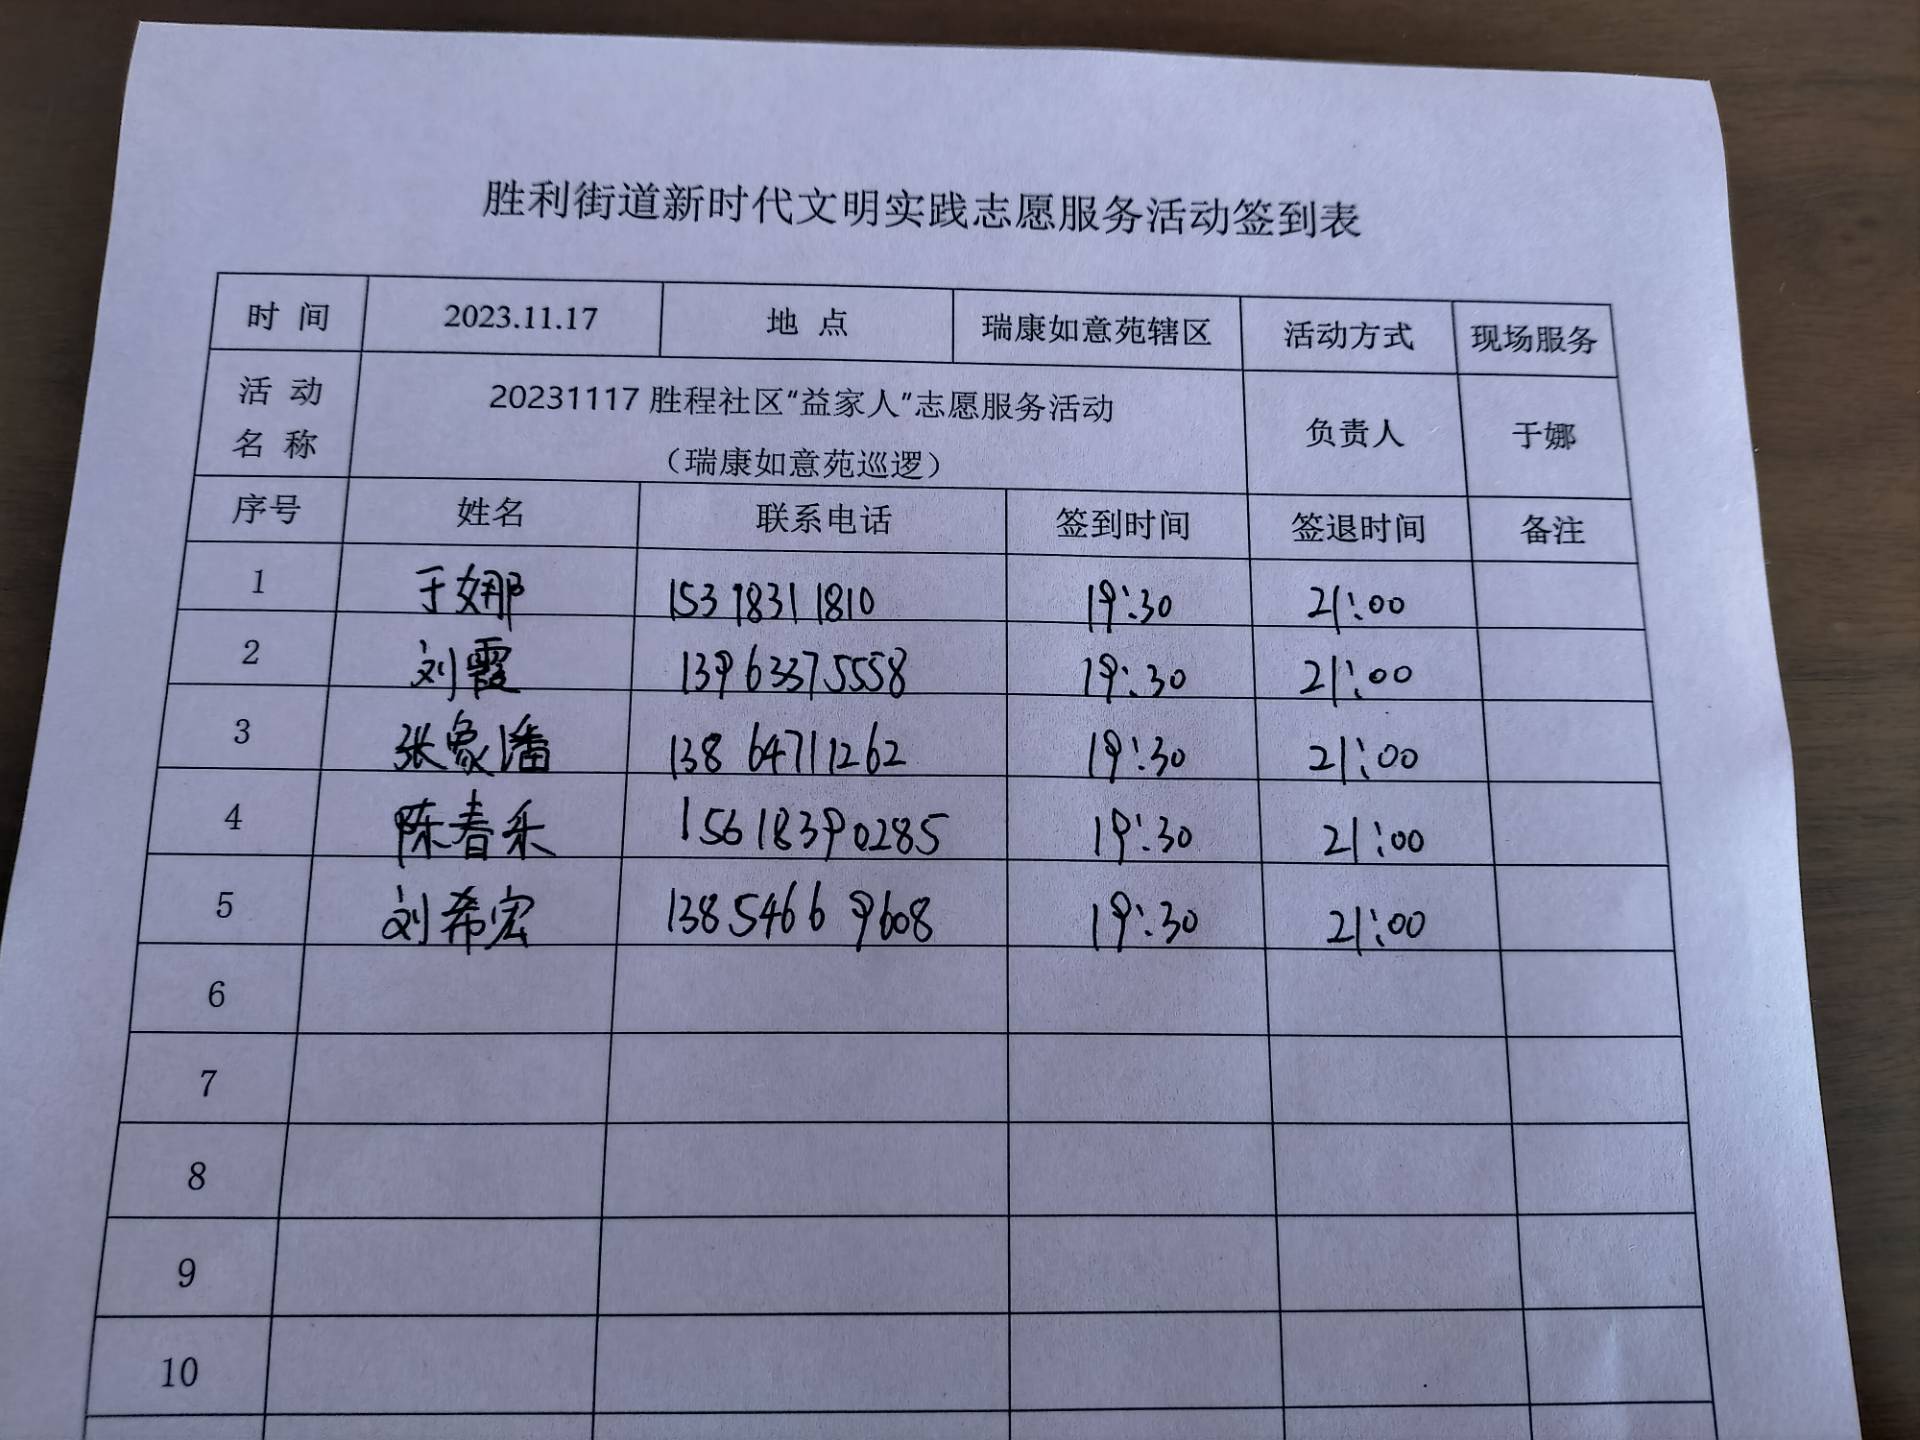 胜利街道新时代文明实践志愿服务活动签到表
时 间 2023.11.17 地 点 瑞康如意苑辖区 活动方式 现场服务
活 动 名 称 20231117 胜程社区“益家人”志愿服务活动 负责人 于娜
（瑞康如意苑巡逻）
序号 姓名 联系电话 签到时间 签退时间 备注
1 于娜 19:30 21:00
2 刘霞 13963375558 19:30 21:00
3 张家潘 13864711262 19:30 21:00
4 陈春乐 15618390285 19:30 21:00
5 刘希宏 13854669608 19:30 21:00
6
7
8
9
10